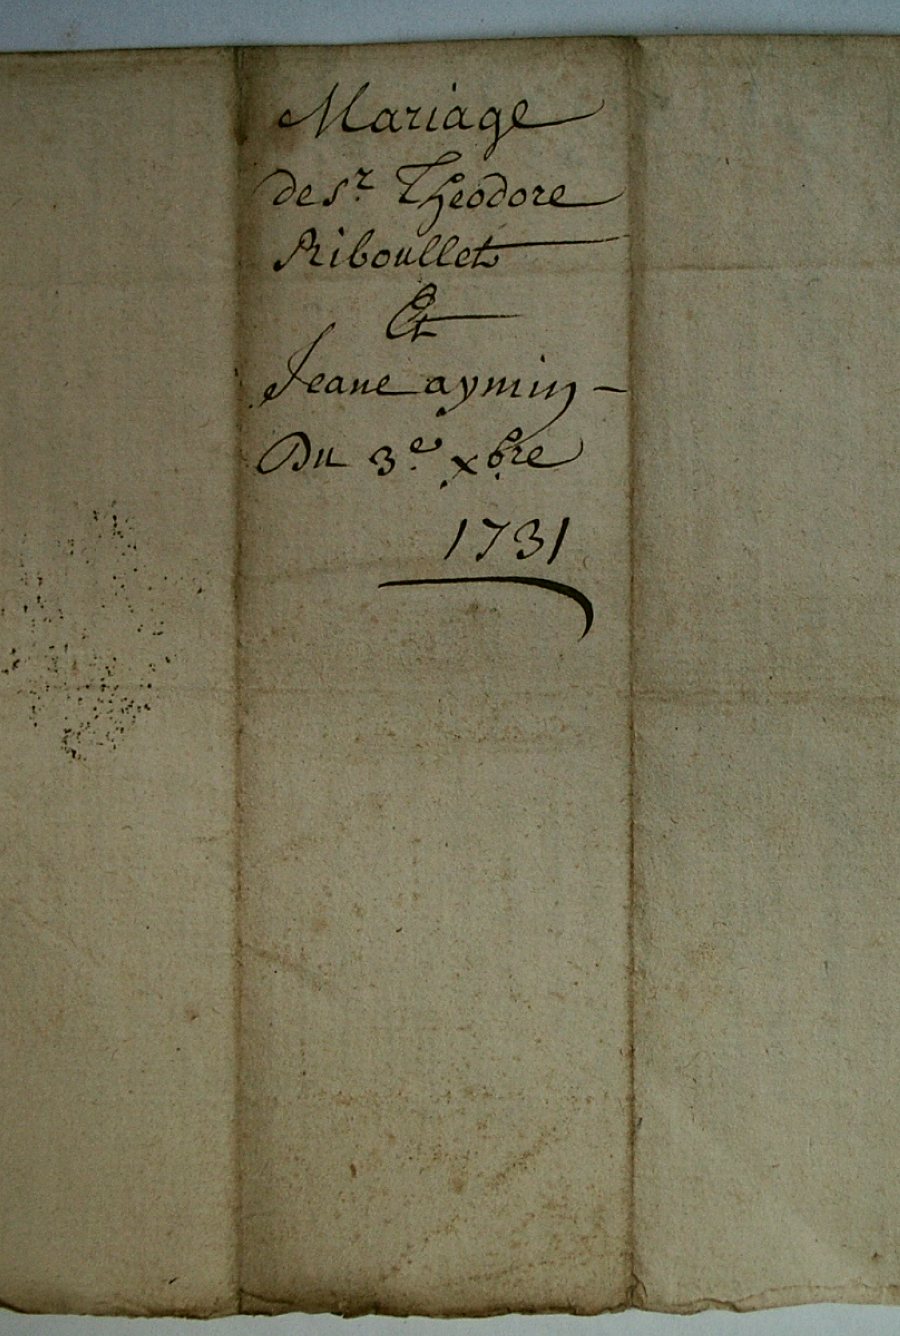 Mariage
de Sr. Theodore
Riboullet
Et
Jeane aymin
Du 3e. xbre
1731